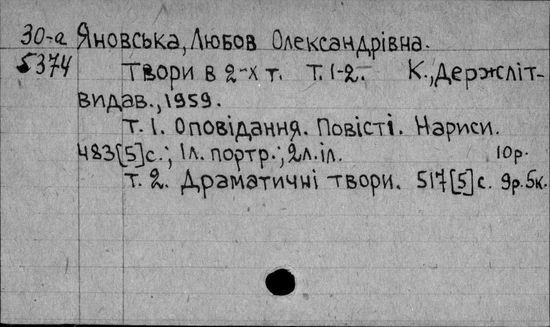 30-а Яновська, Любов Олександрівна.
5374 Твори в 2-х т. Т. 1-2. К., Держліт-
видав., 1959.
т. 1. Оповідання. Повісті. Нариси.
483[5]с.; 1л. портр.; 2л. іл. 10р.
т. 2. Драматичні твори. 517[5]с. 9р. 5к.